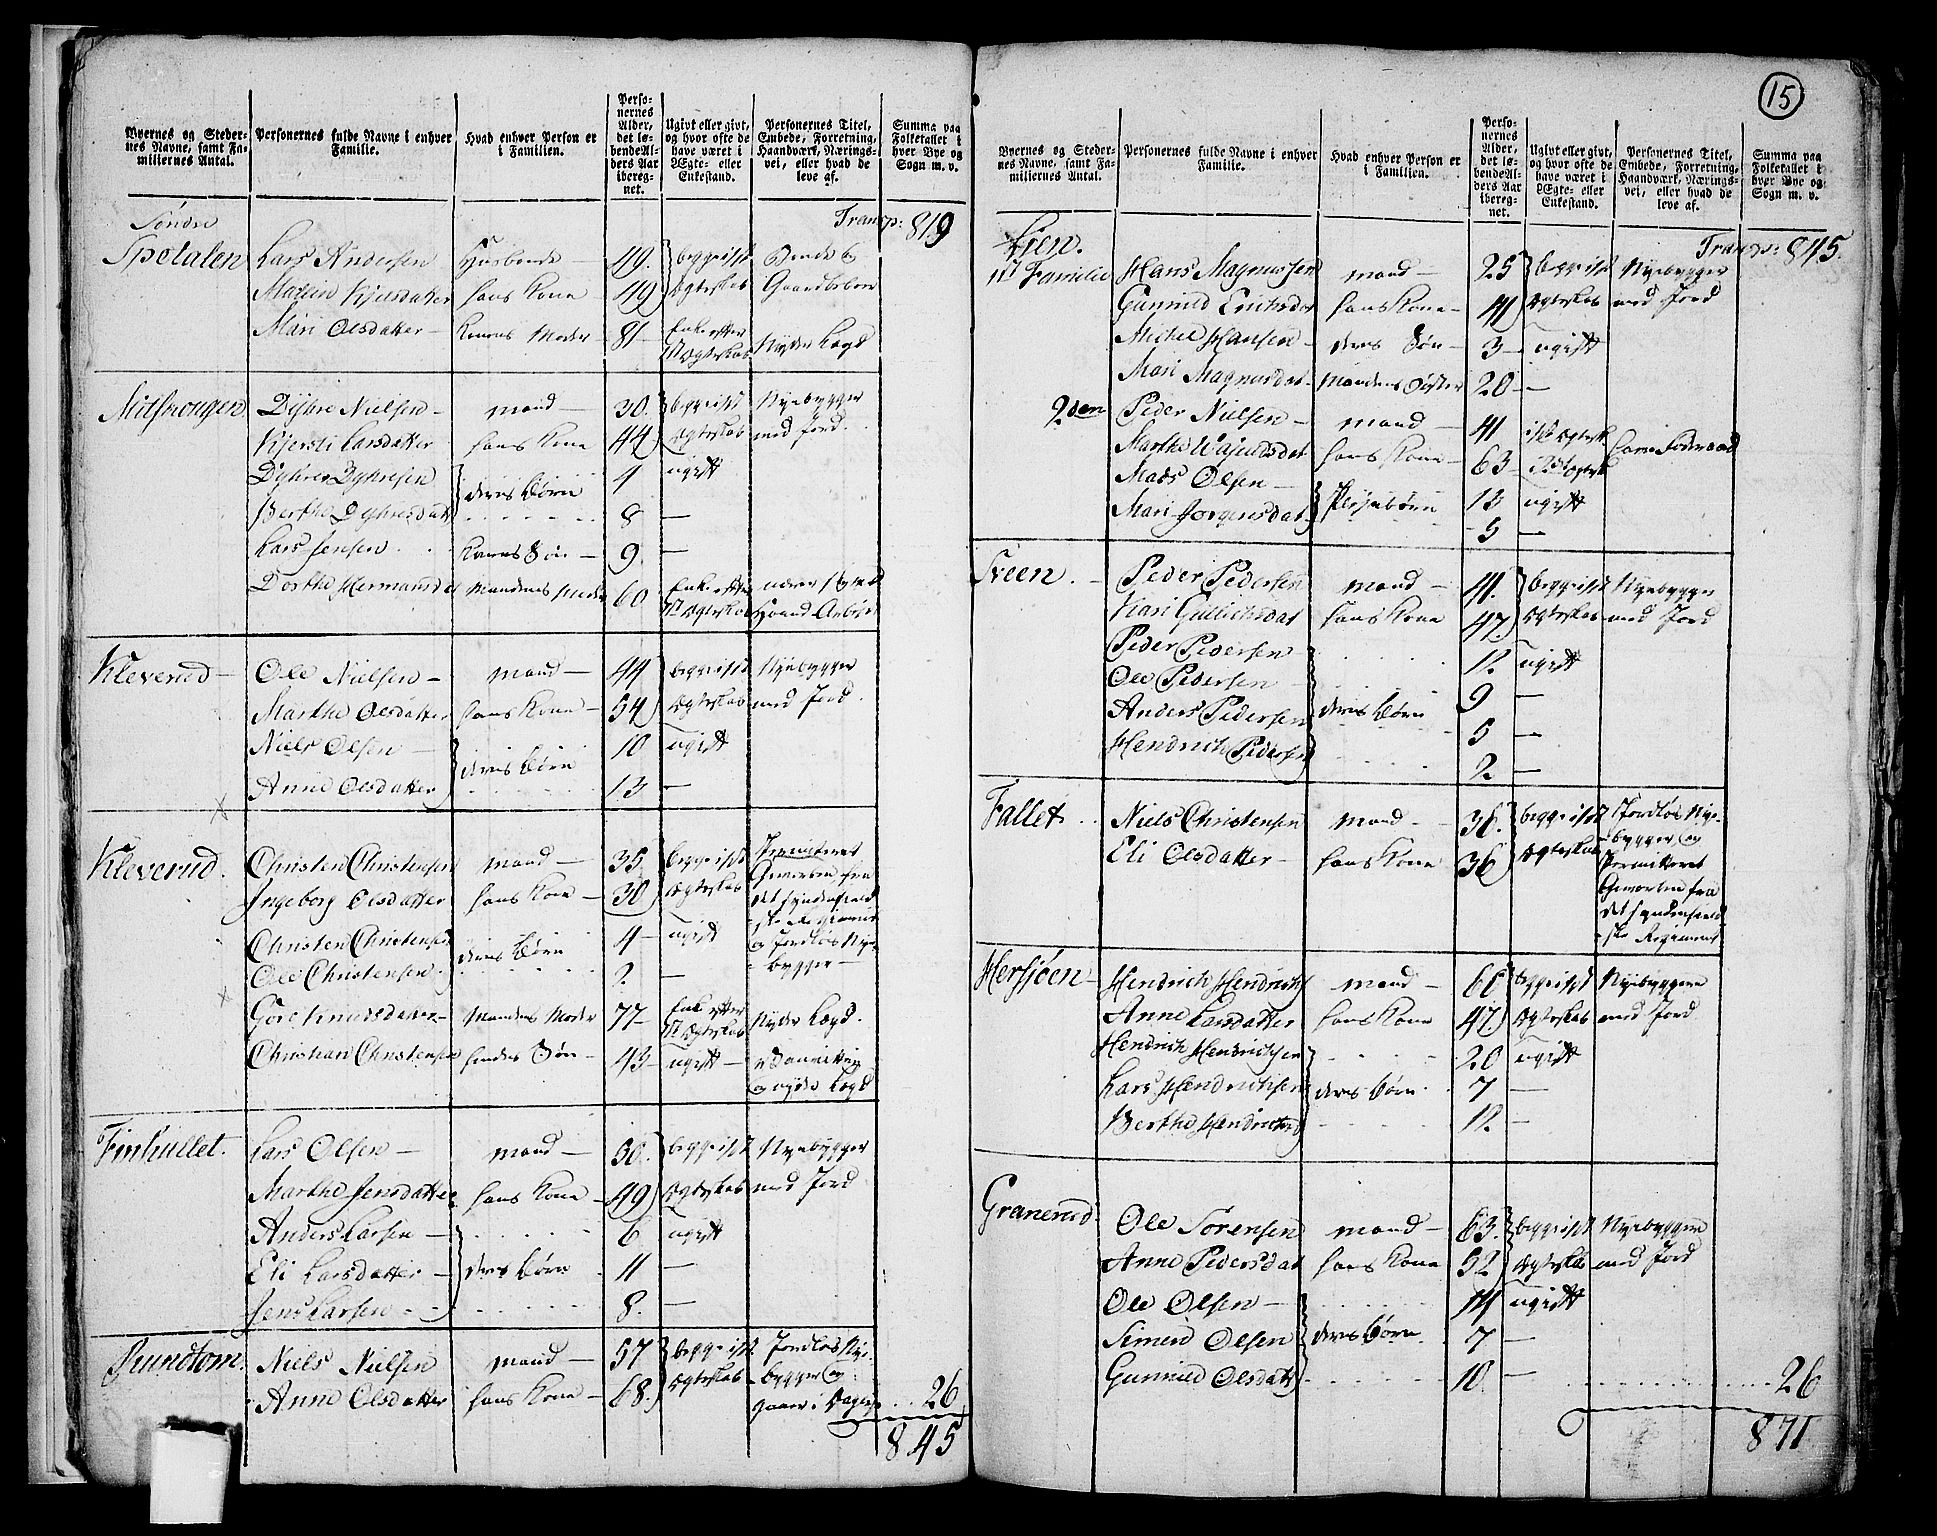 15
Byernes og Stedernes Navne, samt Familiernes Antal.
Personernes fulde Navne i enhver Familie.
Hvad enhver Person er i Familien.
Personernes Alder, det løbende Alders Aar iberegnet.
Ugivt eller givt, og hvor ofte de have været i Ægte- eller Enkestand.
Personernes Titel, Embede, Forretning, Haandværk, Næringsvei, eller hvad de leve af.
Summa paa Folketallet i hver Bye og Sogn m. v.
Transp: 819
Søndre
Spetalen Lars Andersen Husbonde 49. begge i 1st Bonde og
Hans Kone 49 Ægteskab Gaardbeboer
Mari Olsdatter Konens Moder 81 Enke efter 1st Ægteskab Nyder Lægd
Nielsen mand 30. begge i 1st Nyebygger
Kjersti Larsdatter hans Kone 44 Ægteskab med Jord.
deres børn 4 ugift
8 —
Lars Jensen Konens Søn 9. —
Dorthe Hermansdat Mandens Moder 60 Enke efter 1st Ægteskab
Kleverud Ole Nielsen mand 44 begge i 1st Nyebygger
Marthe Olsdatter hans Kone 54 Ægteskab med Jord.
Niels Olsen 10 ugift
deres børn
Anne Olsdatter 13 —
Kleverud. Christen Christensen mand 35. begge i 1st
Ingeborg Olsdatter hans Kone 30 Ægteskab
Christen Christensen deres børn 4 ugift
Ole Christensen 2. —
Gore Knudsdatter Mandens Moder 77 Enke efter 1st Ægteskab Nyder Lægd.
Christian Christensen hendes Søn 43 ugift
og nyder Lægd
Finhullet. Lars Olsen mand 50. begge i 1st Nyebygger
Marthe Jensdatter hans Kone 49 Ægteskab med Jord
Anders Larsen 6 ugift
Eli Larsdatter deres børn 11 —
Jens Larsen 8. —
Rundtom. Niels Nielsen mand 57 begge i 1st Jordløs Nye-
Anne Olsdatter hans Kone 68. Ægteskab bygger og
26
845
Byernes og Stedernes Navne, samt Familiernes Antal.
Personernes fulde Navne i enhver Familie.
Hvad enhver Person er i Familien.
Personernes Alder, det løbende Alders Aar iberegnet.
Ugivt eller givt, og hvor ofte de have været i Ægte- eller Enkestand.
Personernes Titel, Embede, Forretning, Haandværk, Næringsvei, eller hvad de leve af.
Summa paa Folketallet i hver Bye og Sogn m. v.
Transp: 845.
Lien.
1st Familie Hans Magnussen mand 25 begge i 1st Nyebygger
Gunnild Erichsdat hans Kone 41 Ægteskab med Jord
Michel Hansen deres Søn 3 ugift
Mari Magnusdat Mandens Søster 20 —
2den Peder Nielsen mand 41
Marthe hans Kone 63
Mads Olsen 13 ugift
Mari Jorgensdat Pleyebørn 5 —
Tveen. Peder Pedersen mand 41. begge i 1st Nyebygger
Kari Gullichsdat hans Kone 47 Ægteskab med Jord
Peder Pedersen 12. ugift
Ole Pedersen 9 —
Anders Pedersen deres børn 5 —
Hendrich Pedersen 2. —
Fallet. Niels Christensen mand 38. begge i 1st Jordløs Nye-
Eli Olsdatter hans Kone 36 Ægteskab bygger og
fra
det syndenfield
ske Regiment
Hersjøen Hendrich Hendrichs mand 60 begge i 1st Nyebyggere
Anne Larsdatter hans Kone 47. Ægteskab med Jord
Hendrich Hendrichsen 20 ugift
Lars Hendrichsen deres børn 7 —
Berthe Hendrichsd 12. —
Granerud. Ole Sorensen mand 63. begge i 1st Nyebyggere
Anne Pedersdat hans Kone 52 Ægteskab med Jord
Ole Olsen 14 ugift
Simen Olsen deres børn 7 —
Gunnild Olsdatt 10. —
26
871